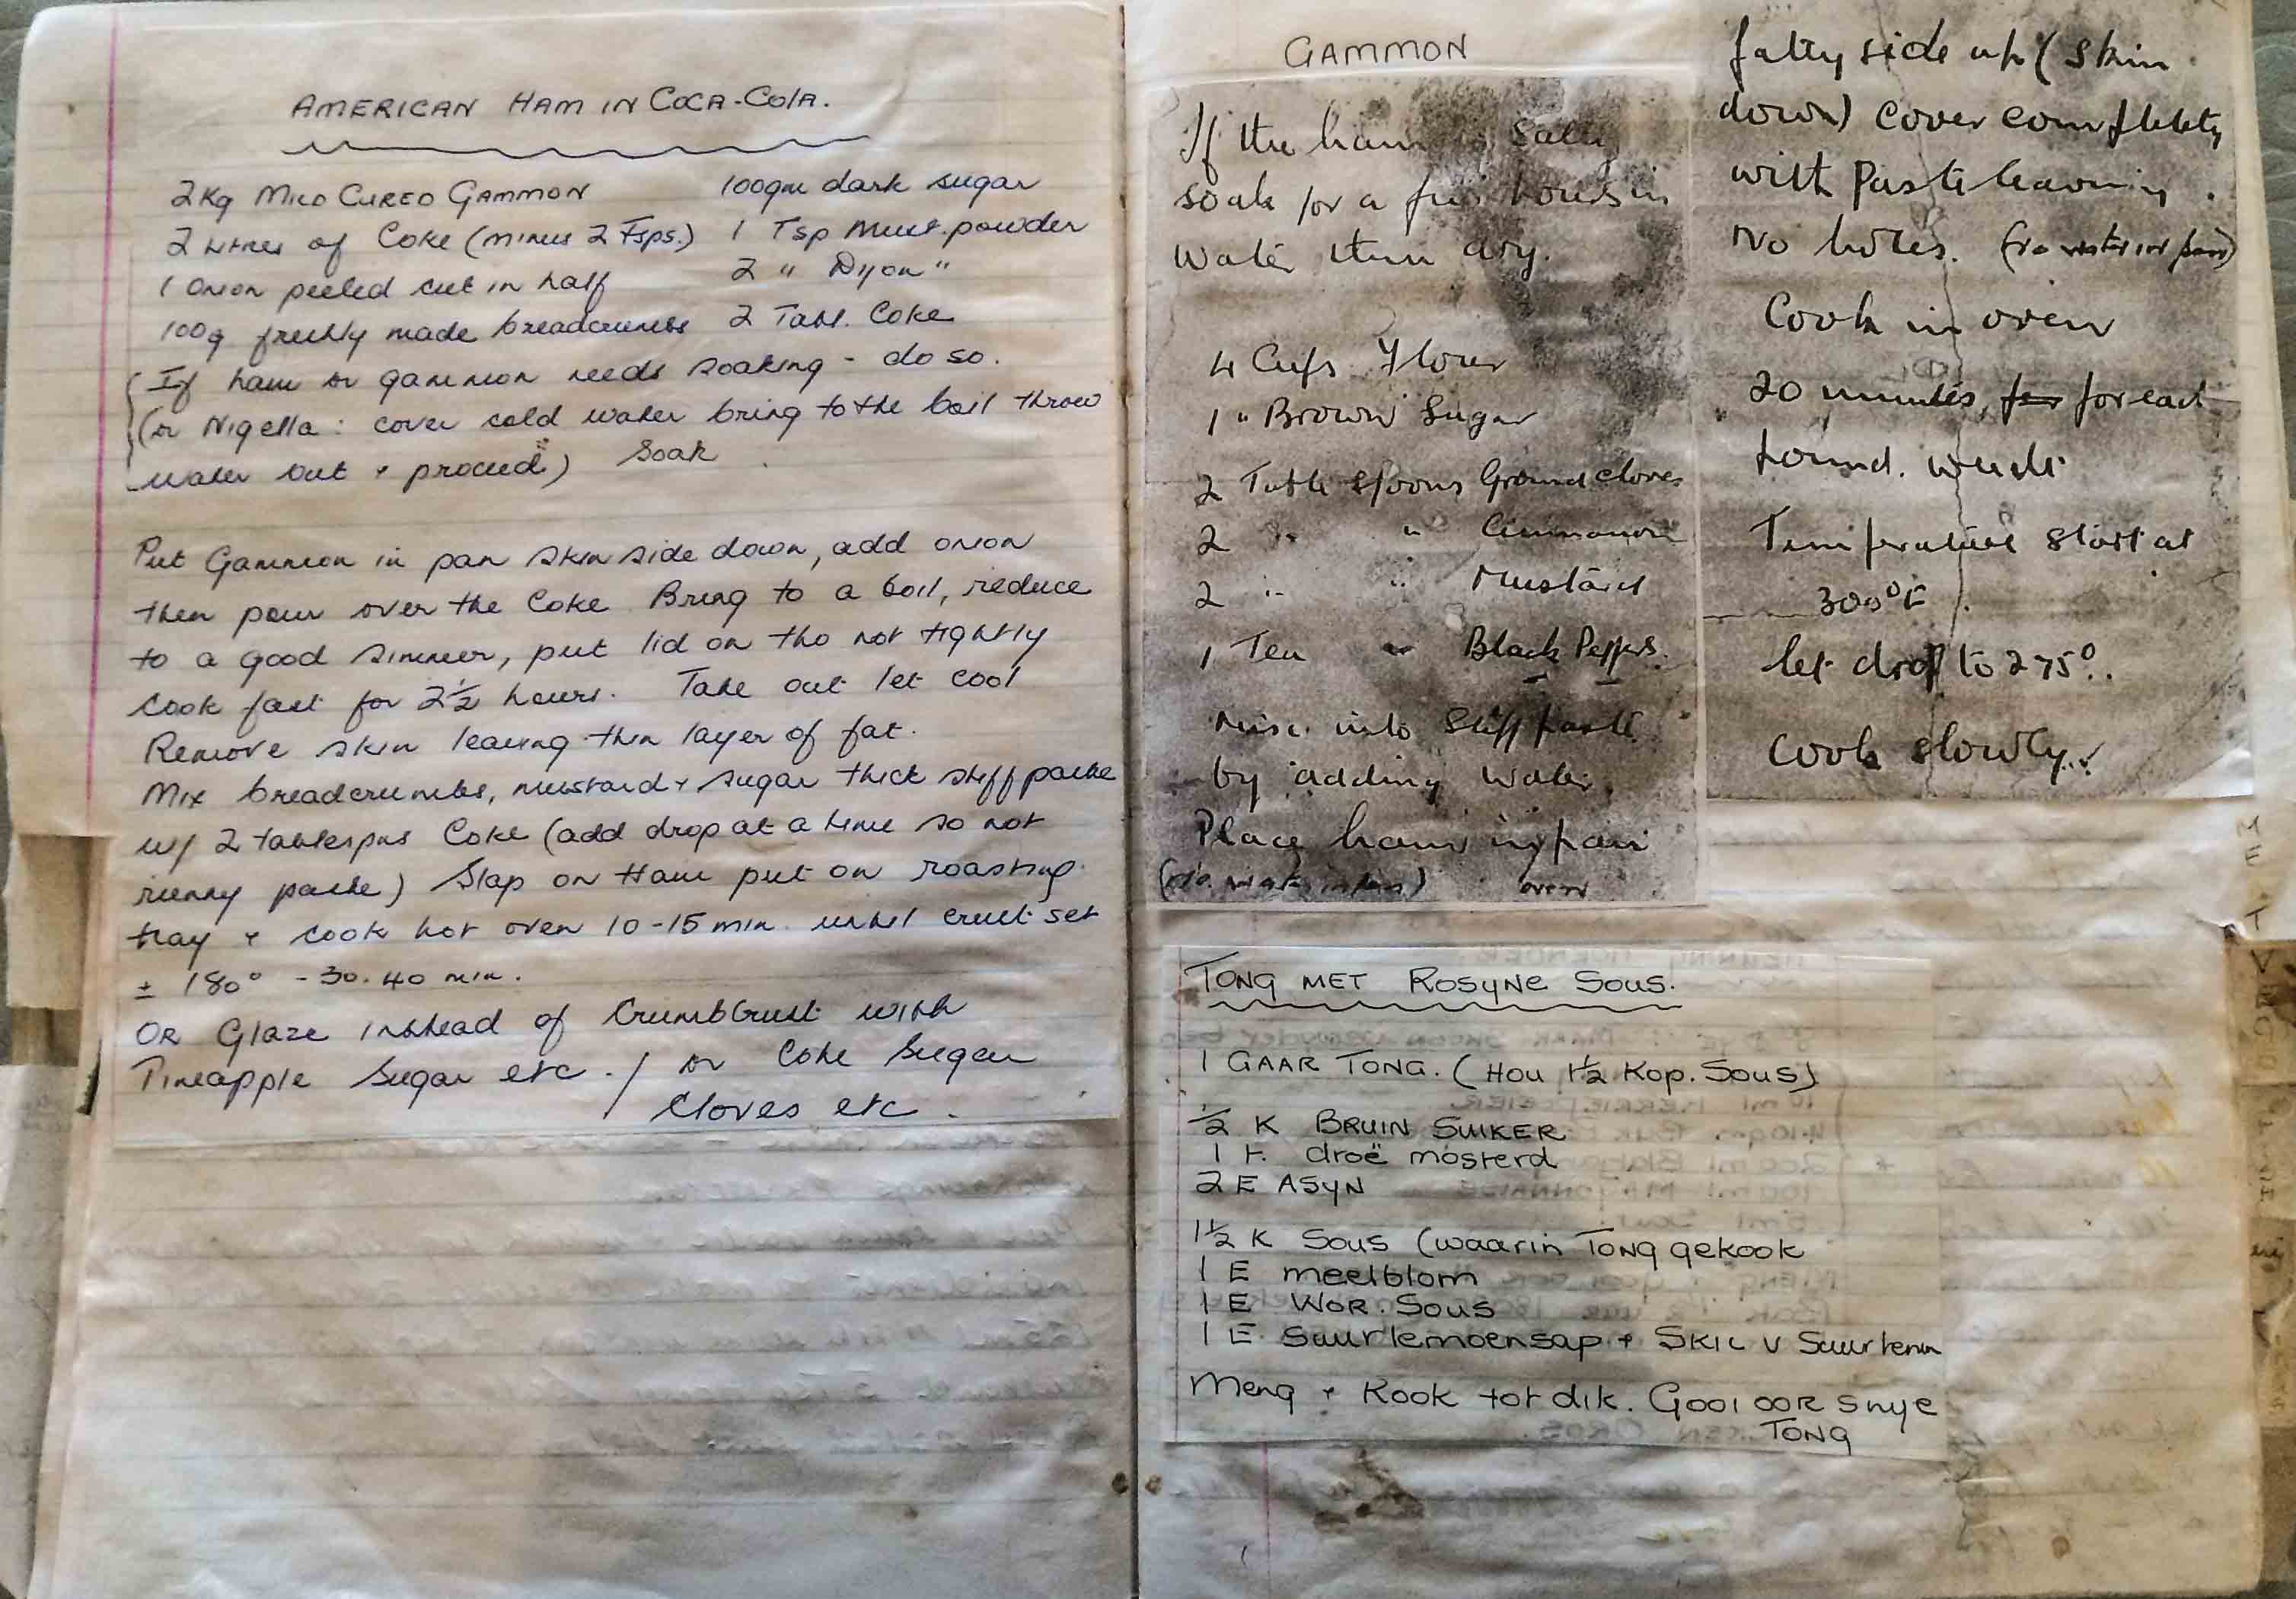 AMERICAN HAM IN COCA-COLA.
2Kg MILD CURED GAMMON
2 Litres of Coke (minus 2 Tsps.)
1 Onion peeled cut in half
100g freshly made breadcrumbs
100gm dark sugar
1 Tsp Must. powder
2 " Dijon "
2 Tabl. Coke
If ham or gammon needs soaking - do so.
(or Nigella: cover cold water bring to the boil throw
water out + proceed) Soak
Put Gammon in pan skin side down, add onion
then pour over the Coke Bring to a boil, reduce
to a good simmer, put lid on tho not tightly
cook fast for 2½ hours. Take out let cool
Remove skin leaving thin layer of fat.
Mix breadcrumbs, mustard + sugar thick stiff paste
w/ 2 tablespns Coke (add drop at a time so not
runny paste) Slap on Ham put on roasting
tray + cook hot oven 10-15 min. until crust set
± 180° - 30.40 min.
OR Glaze instead of Crumbcrust with
Pineapple Sugar etc. / or Coke Sugar
Cloves etc.
GAMMON
If the ham is Salty
soak for a few hours in
water then dry.
4 Cups Flour
1 " Brown Sugar
2 Table Spoons Ground cloves
2 " " Cinnamon
2 " " Mustard
1 Tea " Black Peppers.
Mix into Stiff paste
by adding water.
Place ham in pan
(no water in pan) oven
fatty side up (skin
down) cover completely
with Paste leaving
no holes. (no water in pan)
Cook in oven
20 minutes, for for each
pound. weight
Temperature start at
300°F.
let drop to 275°.
Cook slowly.
TONG MET ROSYNE SOUS.
1 GAAR TONG. (HOU 1½ KOP. SOUS)
½ K BRUIN SUIKER
1 t. droë mosterd
2 E ASYN
1½ K Sous (waarin TONG gekook
1 E meelblom
1 E WOR. SOUS
1 E Suurlemoensap + SKIL v Suurlemn
Meng + Kook tot dik. GOOI OOR snye
TONG